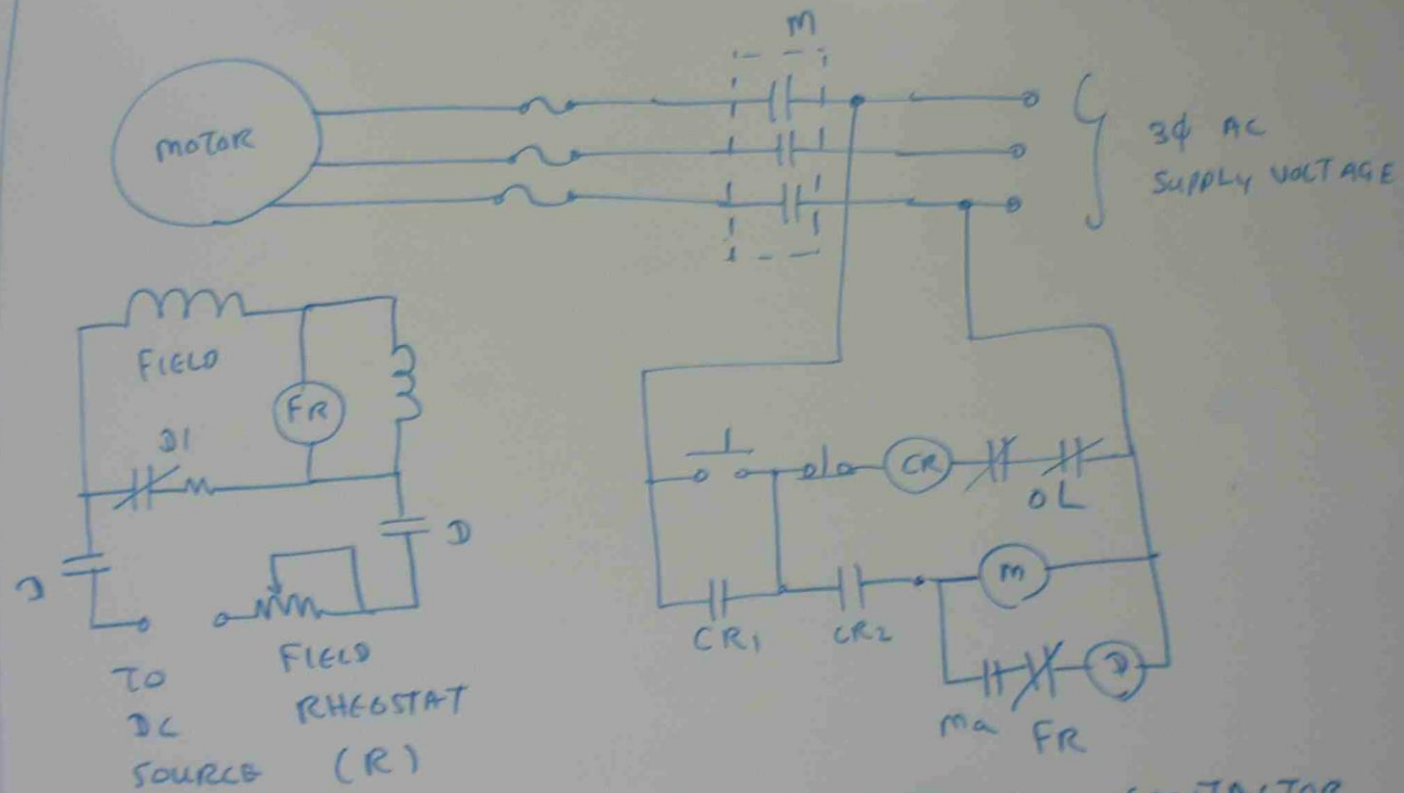 M
MOTOR
3ϕ AC
SUPPLY VOLTAGE
FIELD
FR
D1
CR
OL
D
D
M
CR1
CR2
D
Ma
FR
TO
DC
SOURCE
FIELD
RHEOSTAT
(R)